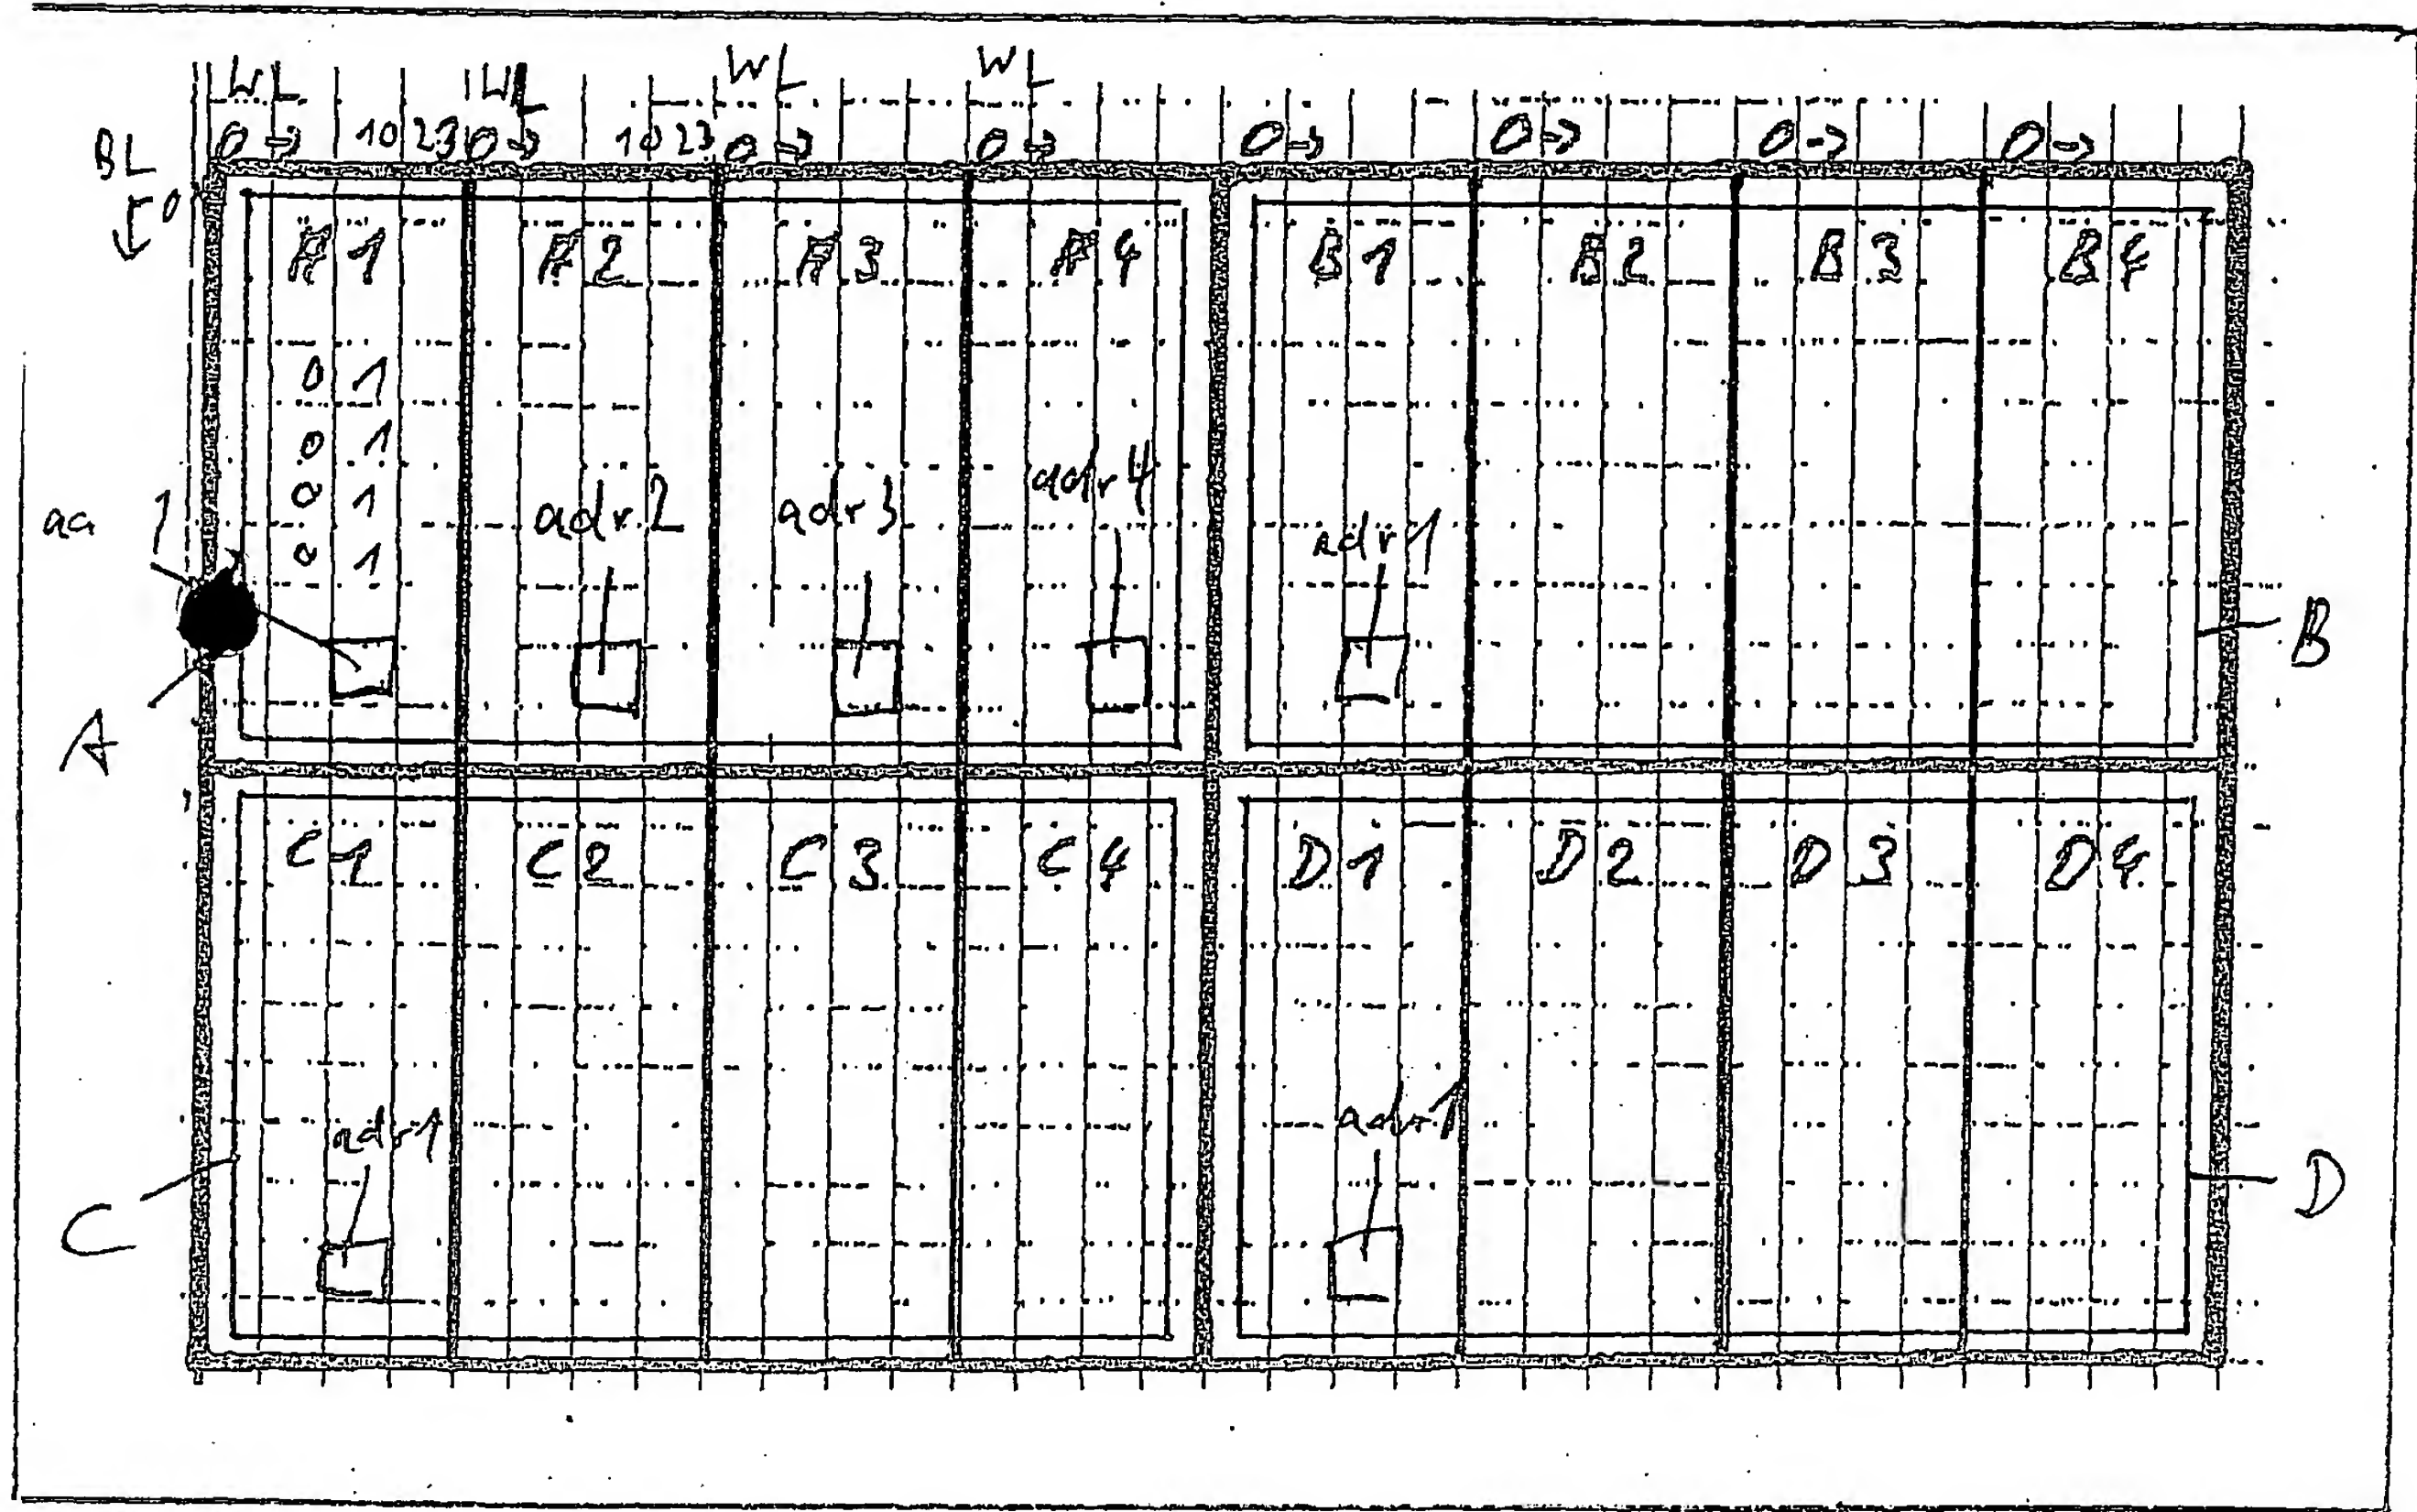 WL WL WL WL
BL 0→ 1023 0→ 1023 0→ 0→ 0→ 0→ 0→ 0→
0
A1 A2 A3 A4 B1 B2 B3 B4
0 1
0 1
0 1
0 1
adr2 adr3 adr4 adr1
A B
C1 C2 C3 C4 D1 D2 D3 D4
adr1 adr1
C D